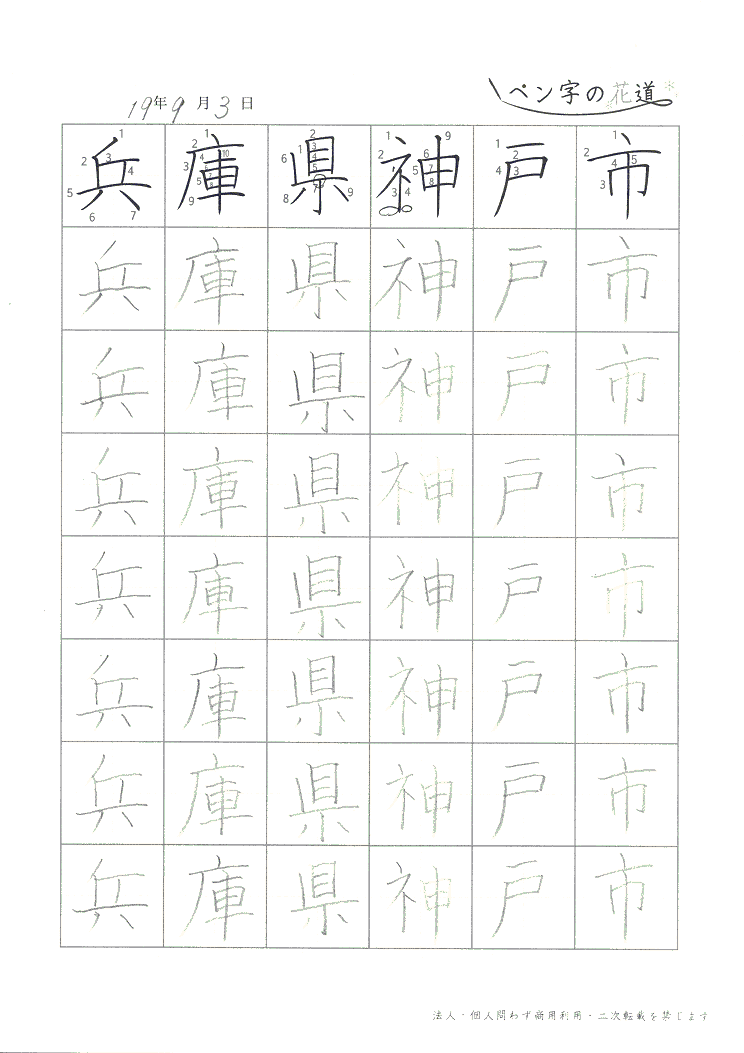 19年9月3日
ペン字の花道
兵庫県神戸市
兵庫県神戸市
兵庫県神戸市
兵庫県神戸市
兵庫県神戸市
兵庫県神戸市
兵庫県神戸市
兵庫県神戸市
法人・個人問わず商用利用・二次転載を禁じます